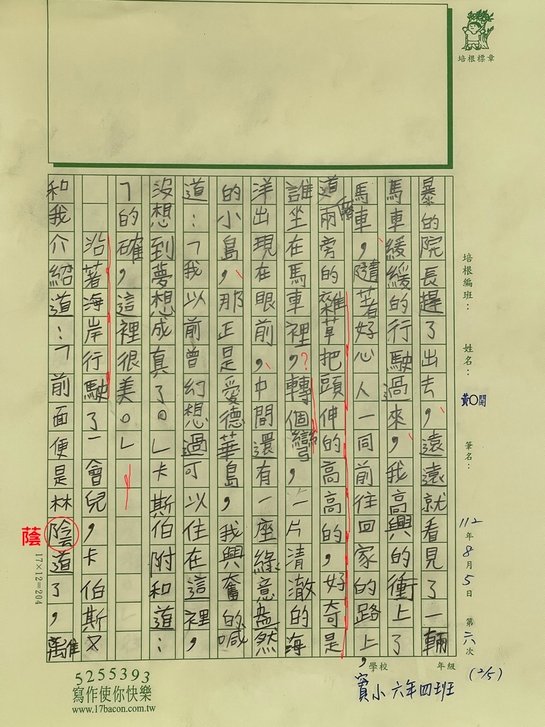 培根標章
培根編班：
姓名：
黃〇開
筆名：
112年8月5日 第六次
(2/5)
暴的院長趕了出去，遠遠就看見了一輛
馬車緩緩的行駛過來，我高興的衝上了
馬車，隨著好心人一同前往回家的路上，
道路兩旁的雜草把頭伸的高高的，好奇是
誰坐在馬車裡，?轉個彎，一片清澈的海
洋出現在眼前，中間還有一座綠意盎然
的小島，那正是愛德華島，我興奮的喊
道：「我以前曾幻想過可以住在這裡，
沒想到夢想成真了。」卡斯伯附和道：
「的確，這裡很美。」
沿著海岸行駛了一會兒，卡伯斯又
和我介紹道：「前面便是林陰道了，雖
蔭
17×12=204
學校
年級
寶小 六年四班
5255393
寫作使你快樂
www.17bacon.com.tw